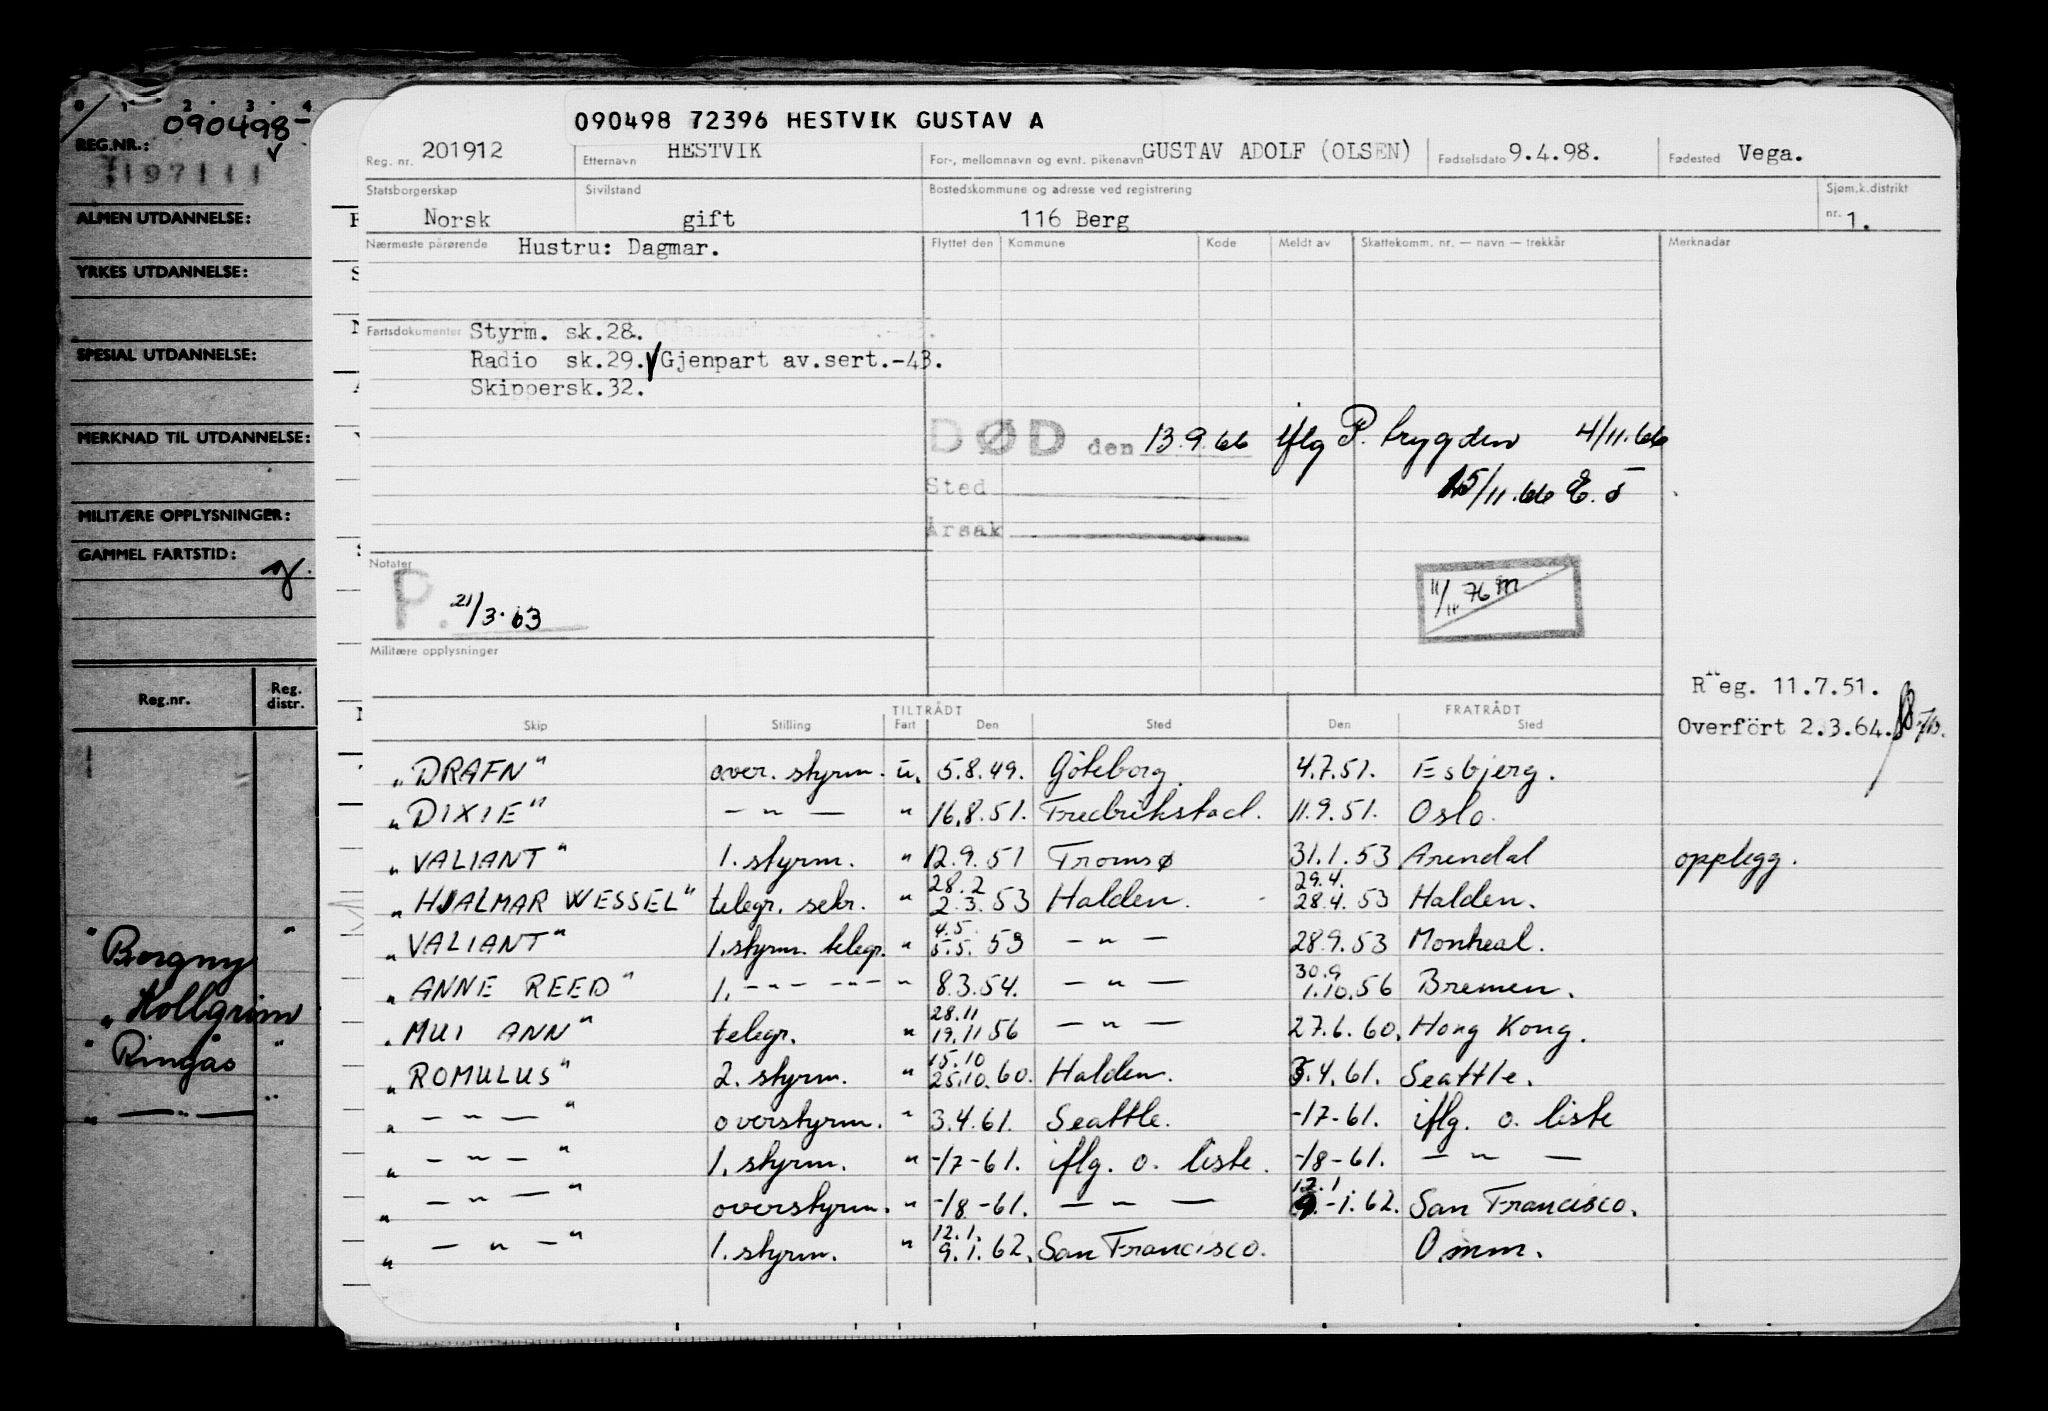 0 1 2 3 4
090498-
REG.NR.:
197111
ALMEN UTDANNELSE:
YRKES UTDANNELSE:
SPESIAL UTDANNELSE:
MERKNAD TIL UTDANNELSE:
MILITÆRE OPPLYSNINGER:
GAMMEL FARTSTID:
Reg.nr. Reg. distr.
"Borgny"
"Hollgrim
"Ringås"
" — " — "
090498 72396 HESTVIK GUSTAV A
Reg. nr. 201912 Etternavn HESTVIK For-, mellomnavn og evnt. pikenavn GUSTAV ADOLF (OLSEN) Fødselsdato 9.4.98. Fødested Vega.
Statsborgerskap Sivilstand Bostedskommune og adresse ved registrering Sjøm.k.distrikt
Norsk gift 116 Berg nr. 1.
Nærmeste pårørende Hustru: Dagmar. Flyttet den Kommune Kode Meldt av Skattekomm. nr. — navn — trekkår Merknadar
Fartsdokumenter Styrm. sk.28.
Radio sk.29. Gjenpart av.sert.-43.
Skippersk.32.
DØD den 13.9.66 iflg P. trygden 4/11.66
Sted 15/11.66 E.
Årsak
Notater
P. 21/3.63
11/11 76 m
Militære opplysninger
Reg. 11.7.51.
Overfört 2.3.64.
TILTRÅDT FRATRÅDT
Skip Stilling Fart Den Sted Den Sted
"DRAFN" over. styrm. u. 5.8.49. Göteborg. 4.7.51. Esbjerg.
"DIXIE" — " — " 16.8.51. Fredrikstad. 11.9.51. Oslo.
"VALIANT" 1. styrm. " 12.9.51 Tromsø 31.1.53 Arendal opplegg.
"HJALMAR WESSEL" telegr. sekr. " 28.2 2.3.53 Halden. 29.4. 28.4.53 Halden.
"VALIANT" 1. styrm. telegr. " 4.5. 5.5.53 — " — 28.9.53 Montreal.
"ANNE REED" 1. - " - - " - " 8.3.54. — " — 30.9 1.10.56 Bremen.
"MUI ANN" telegr. " 28.11 19.11 56 — " — 27.6.60. Hong Kong.
"ROMULUS" 2. styrm. " 15.10 25.10.60. Halden. 3.4.61. Seattle.
" — " — " overstyrm. " 3.4.61. Seattle. -17-61. iflg. o. liste
" — " — " 1. styrm. " -17-61. iflg. o. liste. -18-61. — " —
" — " — " overstyrm. " -18-61. — " — 12.1 9.-1.62. San Francisco.
" — " — " 1. styrm. " 12.1. 9.1.62. San Francisco. Omm.